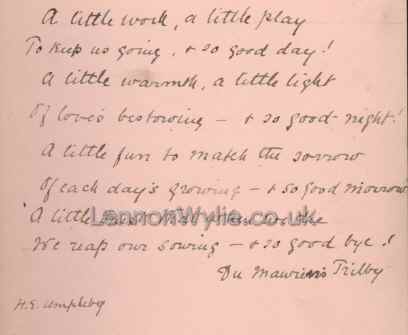 A little work, a little play
To keep us going, & so good day!
A little warmth, a little light
Of love's bestowing – & so good-night!
A little fun to match the sorrow
Of each day's growing – & so good morrow
A little
LennonWylie.co.uk
We reap our sowing – & so good bye!
Du Maurier's Trilby
H.E. Umpleby